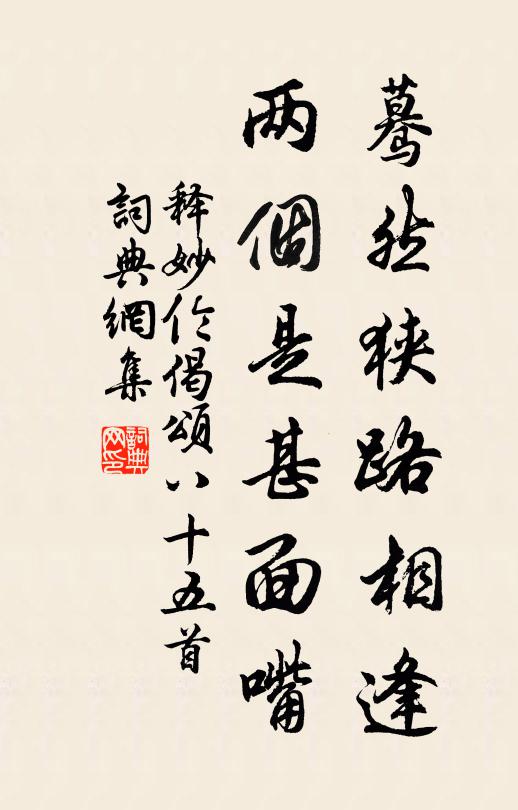 驀然狹路相逢
两個是甚面嘴
释妙伦偈頌八十五首
詞典網集
詞典网印